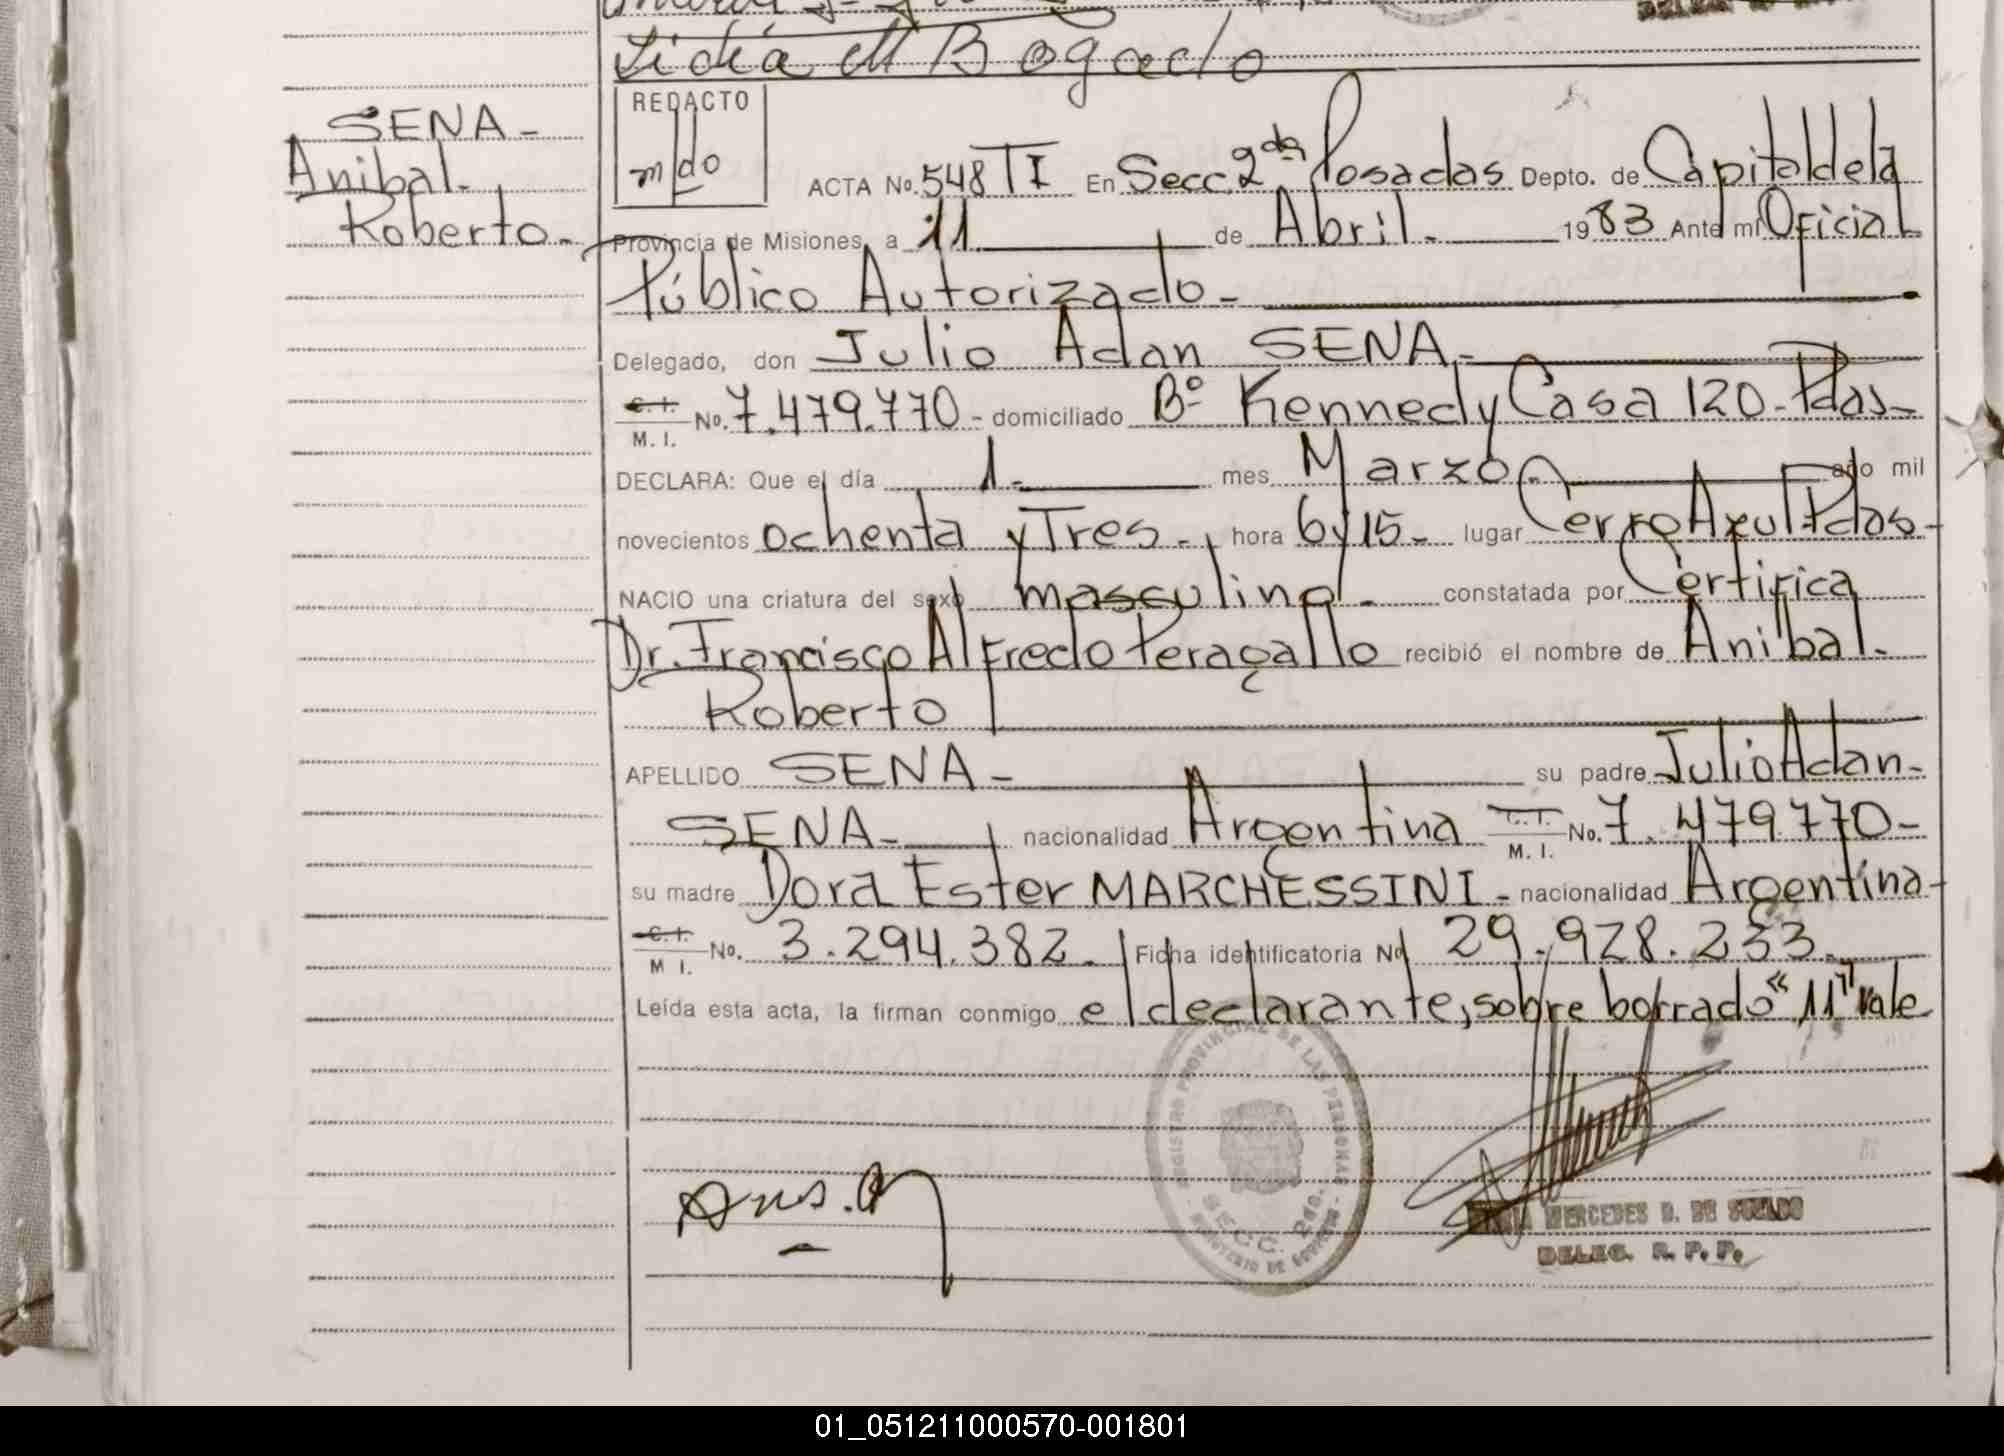 Lidia M Bogado
SENA-
Anibal.
Roberto.-
REDACTO
mdo
ACTA No. 548 TI En Secc. 2da Posadas Depto. de Capital de la
Provincia de Misiones, a 11 de Abril.- 1983 Ante mi Oficial
Público Autorizado-
Delegado, don Julio Adan SENA.-
C. I. No. 7.479.770- domiciliado Bº Kennedy Casa 120- Pdas-
M. I.
DECLARA: Que el día 1.- mes Marzo.- año mil
novecientos ochenta y Tres-. hora 6 y 15- lugar Cerro Azul Pdas-
NACIO una criatura del sexo masculino.- constatada por Certifica
Dr. Francisco Alfredo Peragallo recibió el nombre de Anibal.
Roberto
APELLIDO SENA- su padre Julio Adan-
SENA- nacionalidad Argentina C. I. No. 7.479.770-
M. I.
su madre Dora Ester MARCHESSINI- nacionalidad Argentina-
C. I. No. 3.294.382. Ficha identificatoria No 29.928.233.
M I.
Leída esta acta, la firman conmigo el declarante, sobre borrado "11" vale
REGISTRO PROVINCIAL DE LAS PERSONAS
SECC. 2da.
MINISTERIO DE GOBIERNO
MERCEDES D. DE
DELEG. R. P. P.
01_051211000570-001801